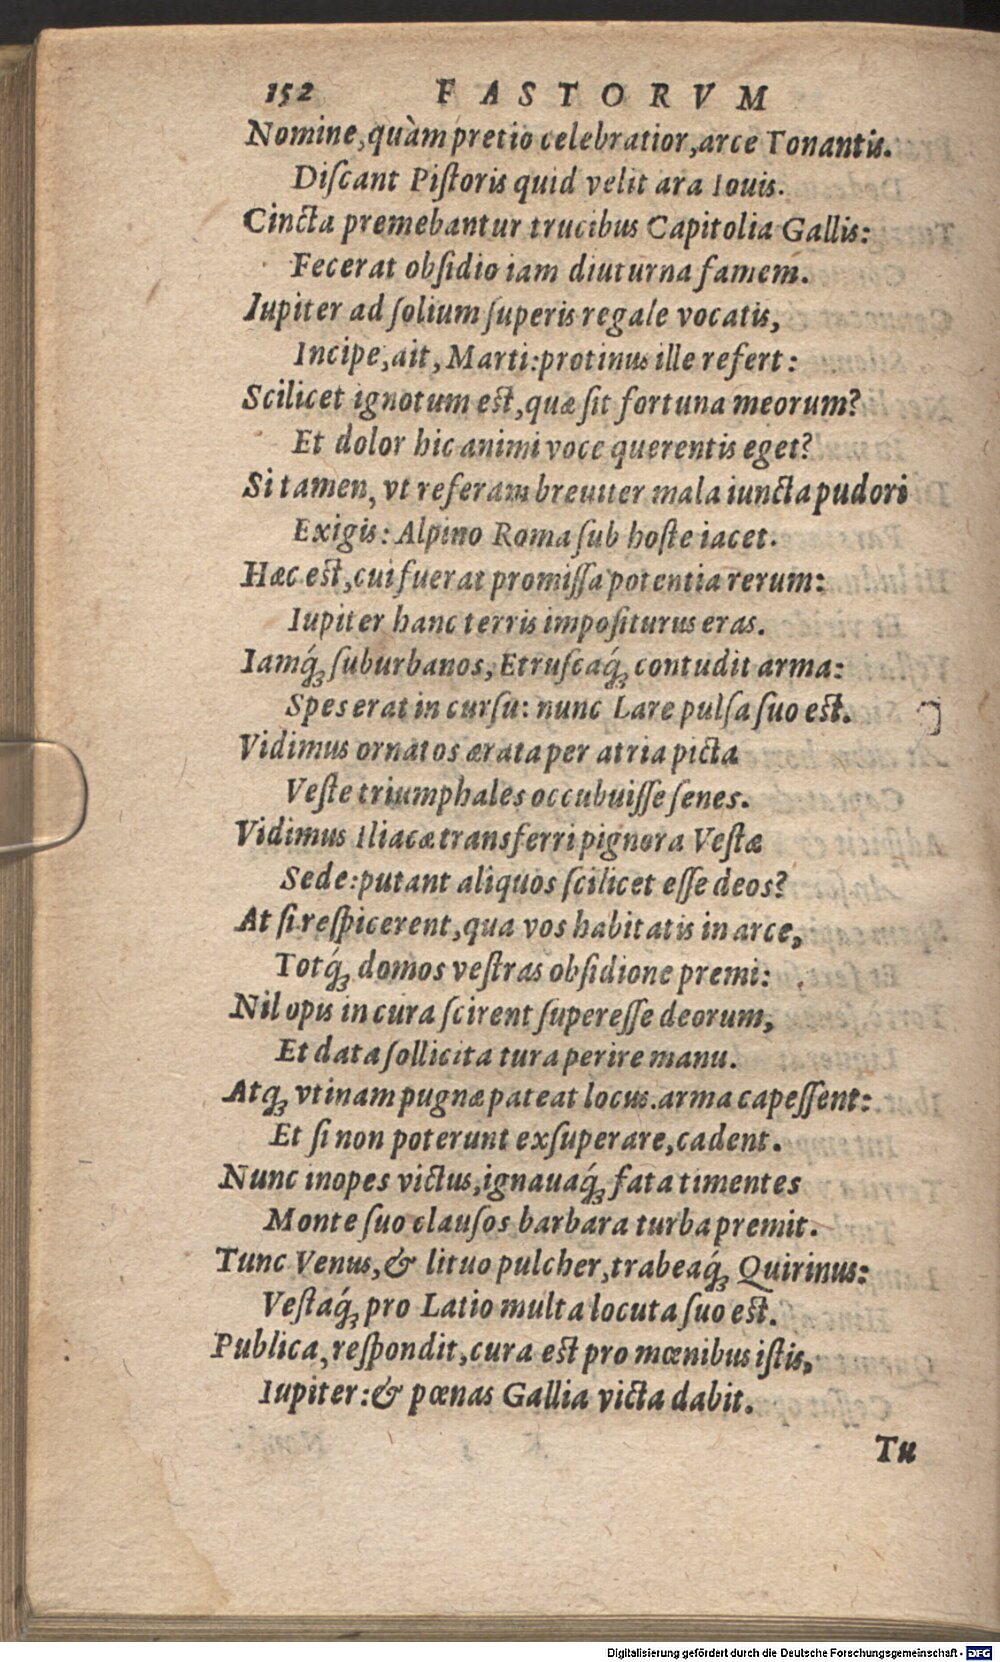 152 FASTORVM
Nomine, quàm pretio celebratior, arce Tonantis.
Diſcant Piſtoris quid velit ara Iouis.
Cincta premebantur trucibus Capitolia Gallis:
Fecerat obſidio iam diuturna famem.
Iupiter ad ſolium ſuperis regale vocatis,
Incipe, ait, Marti: protinus ille refert:
Scilicet ignotum est, quæ ſit fortuna meorum?
Et dolor hic animi voce querentis eget?
Si tamen, vt referam breuiter mala iuncta pudori
Exigis: Alpino Roma ſub hoſte iacet.
Hæc est, cui fuerat promiſſa potentia rerum:
Iupiter hanc terris impoſiturus eras.
Iamq́; ſuburbanos, Etruſcaq́; contudit arma:
Spes erat in curſu: nunc Lare pulſa ſuo est.
Vidimus ornatos ærata per atria picta
Veſte triumphales occubuiſſe ſenes.
Vidimus Iliacæ transferri pignora Veſtæ
Sede: putant aliquos ſcilicet eſſe deos?
At ſi reſpicerent, qua vos habitatis in arce,
Totq́; domos veſtras obſidione premi:
Nil opis in cura ſcirent ſupereſſe deorum,
Et data ſollicita tura perire manu.
Atq; vtinam pugnæ pateat locus. arma capeſſent:
Et ſi non poterunt exſuperare, cadent.
Nunc inopes victus, ignauaq́; fata timentes
Monte ſuo clauſos barbara turba premit.
Tunc Venus, & lituo pulcher, trabeaq́; Quirinus:
Veſtaq́; pro Latio multa locuta ſuo est.
Publica, reſpondit, cura est pro mœnibus iſtis,
Iupiter: & pœnas Gallia victa dabit.
Tu
Digitalisierung gefördert durch die Deutsche Forschungsgemeinschaft - DFG